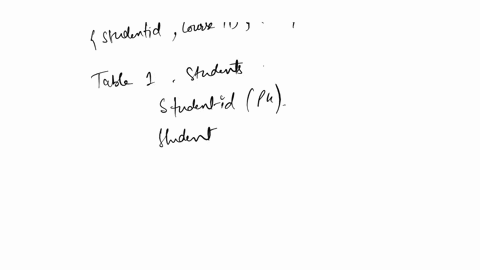 { studentid , course
Table 1 . Students
Studentid (PK).
Student